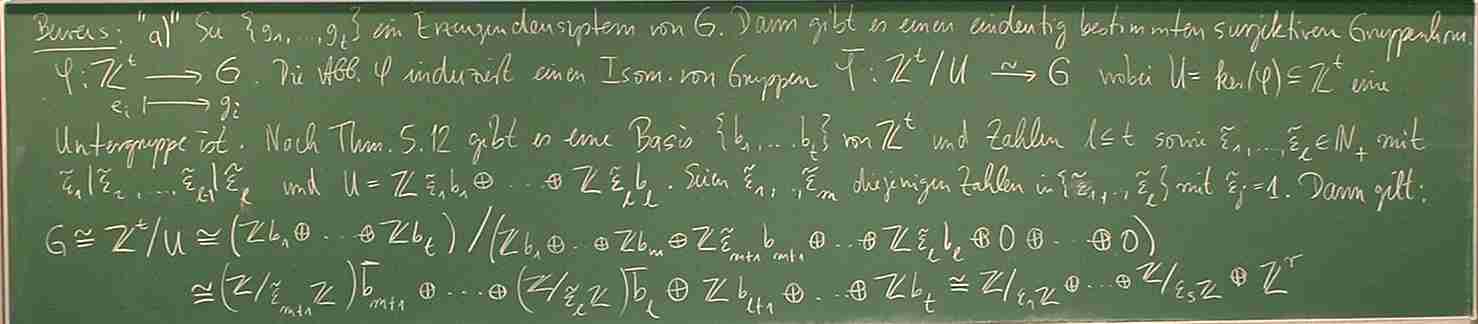 Beweis: "a)" Sei {g₁,...,g_t} ein Erzeugendensystem von G. Dann gibt es einen eindeutig bestimmten surjektiven Gruppenhom.
φ: ℤ^t ⟶ G. Die Abb. φ induziert einen Isom. von Gruppen φ̄: ℤ^t/U ⥲ G wobei U = ker(φ) ⊆ ℤ^t eine
e_i ⟼ g_i
Untergruppe ist. Nach Thm. 5.12 gibt es eine Basis {b₁,...,b_t} von ℤ^t und Zahlen l ≤ t sowie ε̃₁,...,ε̃_l ∈ ℕ₊ mit
ε̃₁|ε̃₂,...,ε̃_{l-1}|ε̃_l und U = ℤε̃₁b₁ ⊕ ... ⊕ ℤε̃_l b_l. Seien ε̃₁,..,ε̃_m diejenigen Zahlen in {ε̃₁,..,ε̃_l} mit ε̃_j = 1. Dann gilt:
G ≅ ℤ^t/U ≅ (ℤb₁ ⊕ ... ⊕ ℤb_t) / (ℤb₁ ⊕ .. ⊕ ℤb_m ⊕ ℤε̃_{m+1}b_{m+1} ⊕ ... ⊕ ℤε̃_l b_l ⊕ 0 ⊕ ... ⊕ 0)
≅ (ℤ/ε̃_{m+1}ℤ) b̄_{m+1} ⊕ ... ⊕ (ℤ/ε̃_lℤ) b̄_l ⊕ ℤb_{l+1} ⊕ ... ⊕ ℤb_t ≅ ℤ/ε₁ℤ ⊕ ... ⊕ ℤ/ε_sℤ ⊕ ℤ^r